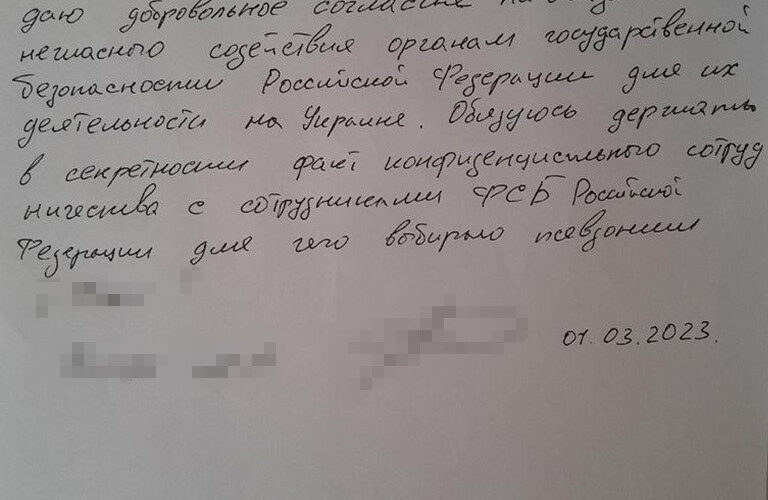 даю добровольное согласие на
негласного содействия органам государственной
безопасности Российской Федерации для их
деятельности на Украине. Обязуюсь держать
в секретности факт конфиденциального сотруд
ничества с сотрудниками ФСБ Российской
Федерации для чего выбираю псевдоним
01.03.2023.